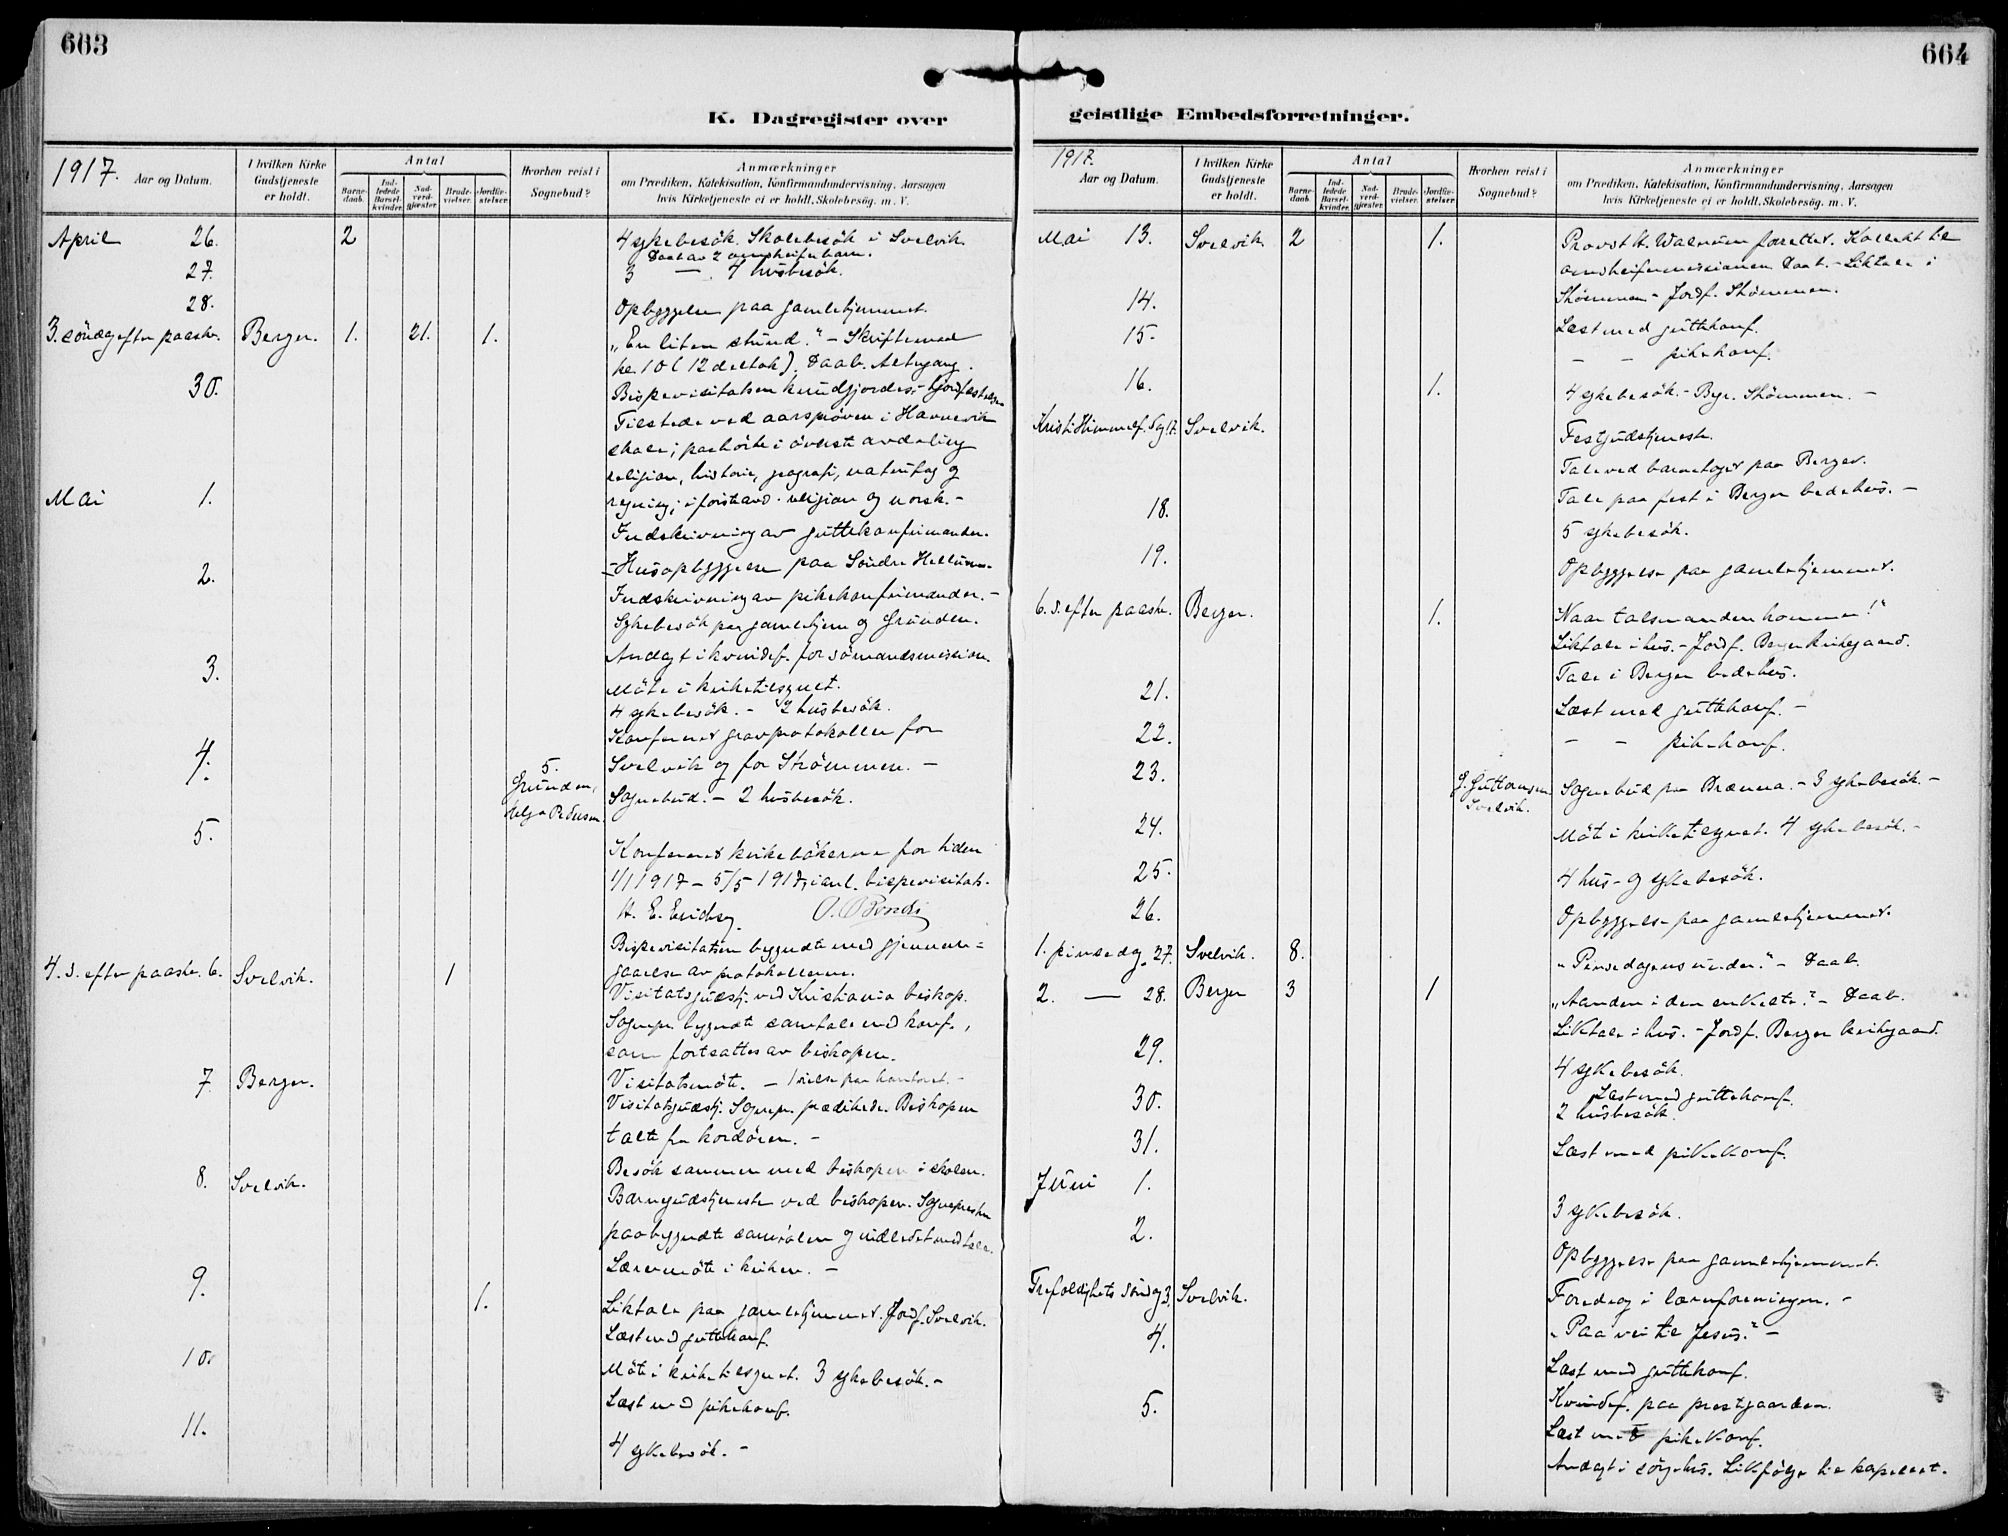 663
K. Dagregister over
1917. Aar og Datum.
I hvilken Kirke Gudstjeneste er holdt.
Antal
Barnedaab.
Indledede Barselkvinder.
Nadverdgjæster.
Brudevielser.
Jordfæstelser.
Hvorhen reist i Sognebud?
Anmærkninger
om Prædiken, Katekisation, Konfirmandundervisning, Aarsagen
hvis Kirketjeneste ei er holdt, Skolebesøg. m. V.
April 26. 2 4 sykebesök. Skolebesök i Svelvik.
Daab av 2 omstreiferbarn.
27. 3 — 4 husbesök.
28. Opbyggelse paa gamlehjemmet.
3. söndag efter paaske. Berger. 1. 21. 1. "En liten stund." - Skriftemaal
kl. 10 (12 deltok). Daab. Altergang.
30. Bispevisitatsen kundgjordes. - Jordfæstelse
Tilstede ved aarspröven i Havnevik
skole; paahörte i överste avdeling
religion, historie, geografi, naturfag og
Mai 1. regning; i forstand. religion og norsk. -
Indskrivning av guttekonfirmander.
2. - Husopbyggelse paa Söndre Hellum.
Indskrivning av pikekonfirmander. -
Sykebesök paa gamlehjem og Grunden.
Andagt i kvindef. for sömandsmission.
3. Möte i kirketilsynet.
4 sykebesök. - 2 husbesök.
Konferert gravprotokollen for
4. 5. Svelvik og for Strömmen. -
Grunden, Sognebud. - 2 husbesök.
Helga Pedersen.
5. Konferert kirkebökerne for tiden
1/1 1917 - 5/5 1917, i anl. bispevisitats.
Bispevisitatsen begyndte med gjennem=
4. s. efter paaske. 6. Svelvik. 1 gaaelse av protokollerne.
Visitatsgudstj. ved Kristiania biskop.
Sognepr. begyndte samtale med konf.,
som fortsattes av biskopen.
7. Berger. Visitatsmöte. - 1 vielse paa kontoret. -
Visitatsgudstj. Sognepr. prædikede. Biskopen
talte fra kordören. -
8. Svelvik. Besök sammen med biskopen i skolen.
Barnegudstjeneste ved biskopen. Sognepresten
paabegyndte samtalen og indledet med tale.
Lærermöte i kirken. -
9. 1. Liktale paa gamlehjemmet. Jordf. Svelvik.
Læst med guttekonf.
10. Möte i kirketilsynet. 3 sykebesök. -
Læst med pikekonf.
11. 4 sykebesök. -
664
geistlige Embedsforretninger.
1917. Aar og Datum.
I hvilken Kirke Gudstjeneste er holdt.
Antal
Barnedaab.
Indledede Barselkvinder.
Nadverdgjæster.
Brudevielser.
Jordfæstelser.
Hvorhen reist i Sognebud?
Anmærkninger
om Prædiken, Katekisation, Konfirmandundervisning, Aarsagen
hvis Kirketjeneste ei er holdt, Skolebesøg. m. V.
Mai 13. Svelvik. 2 1. Provst H. Walnum forrettet. Kollekt til
omstreifermissionen. Daab. - Liktale i
14. Strömmen - Jordf. Strömmen.
15. Læst med guttekonf.
— — pikekonf.
16. 1. 4 sykebesök. - Begr. Strömmen. -
Kristi Himmelf. dag 17. Svelvik. Festgudstjeneste.
Tale ved barnetoget paa Berger.
Tale paa fest i Berger bedehus. -
18. 5 sykebesök.
19. Opbyggelse paa gamlehjemmet.
6. s. efter paaske. Berger. 1. "Naar talsmanden kommer!"
Liktale i hus. - Jordf. Berger kirkegaard.
Tale i Berger bedehus.
21. Læst med guttekonf. -
22. — — pikekonf.
23. G. Guttormsen Svelvik. Sognebud paa Brænna. - 3 sykebesök. -
24. Möte i kirketilsynet. 4 sykebesök. -
25. 4 hus- og sykebesök.
26. Opbyggelse paa gamlehjemmet.
1. pinsedag. 27. Svelvik. 8. "Pinsedagens under." - Daab.
2. — 28. Berger 3 1 "Aanden i den enkelte." - Daab.
Liktale i hus. - Jordf. Berger kirkegaard.
29. 4 sykebesök.
Læst med guttekonf.
30. 2 husbesök.
31. Læst med pikekonf.
Juni 1. 3 sykebesök.
2. Opbyggelse paa gamlehjemmet.
Trefoldighets söndag 3. Svelvik. Foredrag i lærerforeningen. -
"Paa vei til Jesus." -
4. Læst med guttekonf.
Kvindef. paa prestgaarden.
5. Læst med pikekonf.
Andagt i sörgehus. Likfölge til kapellet.